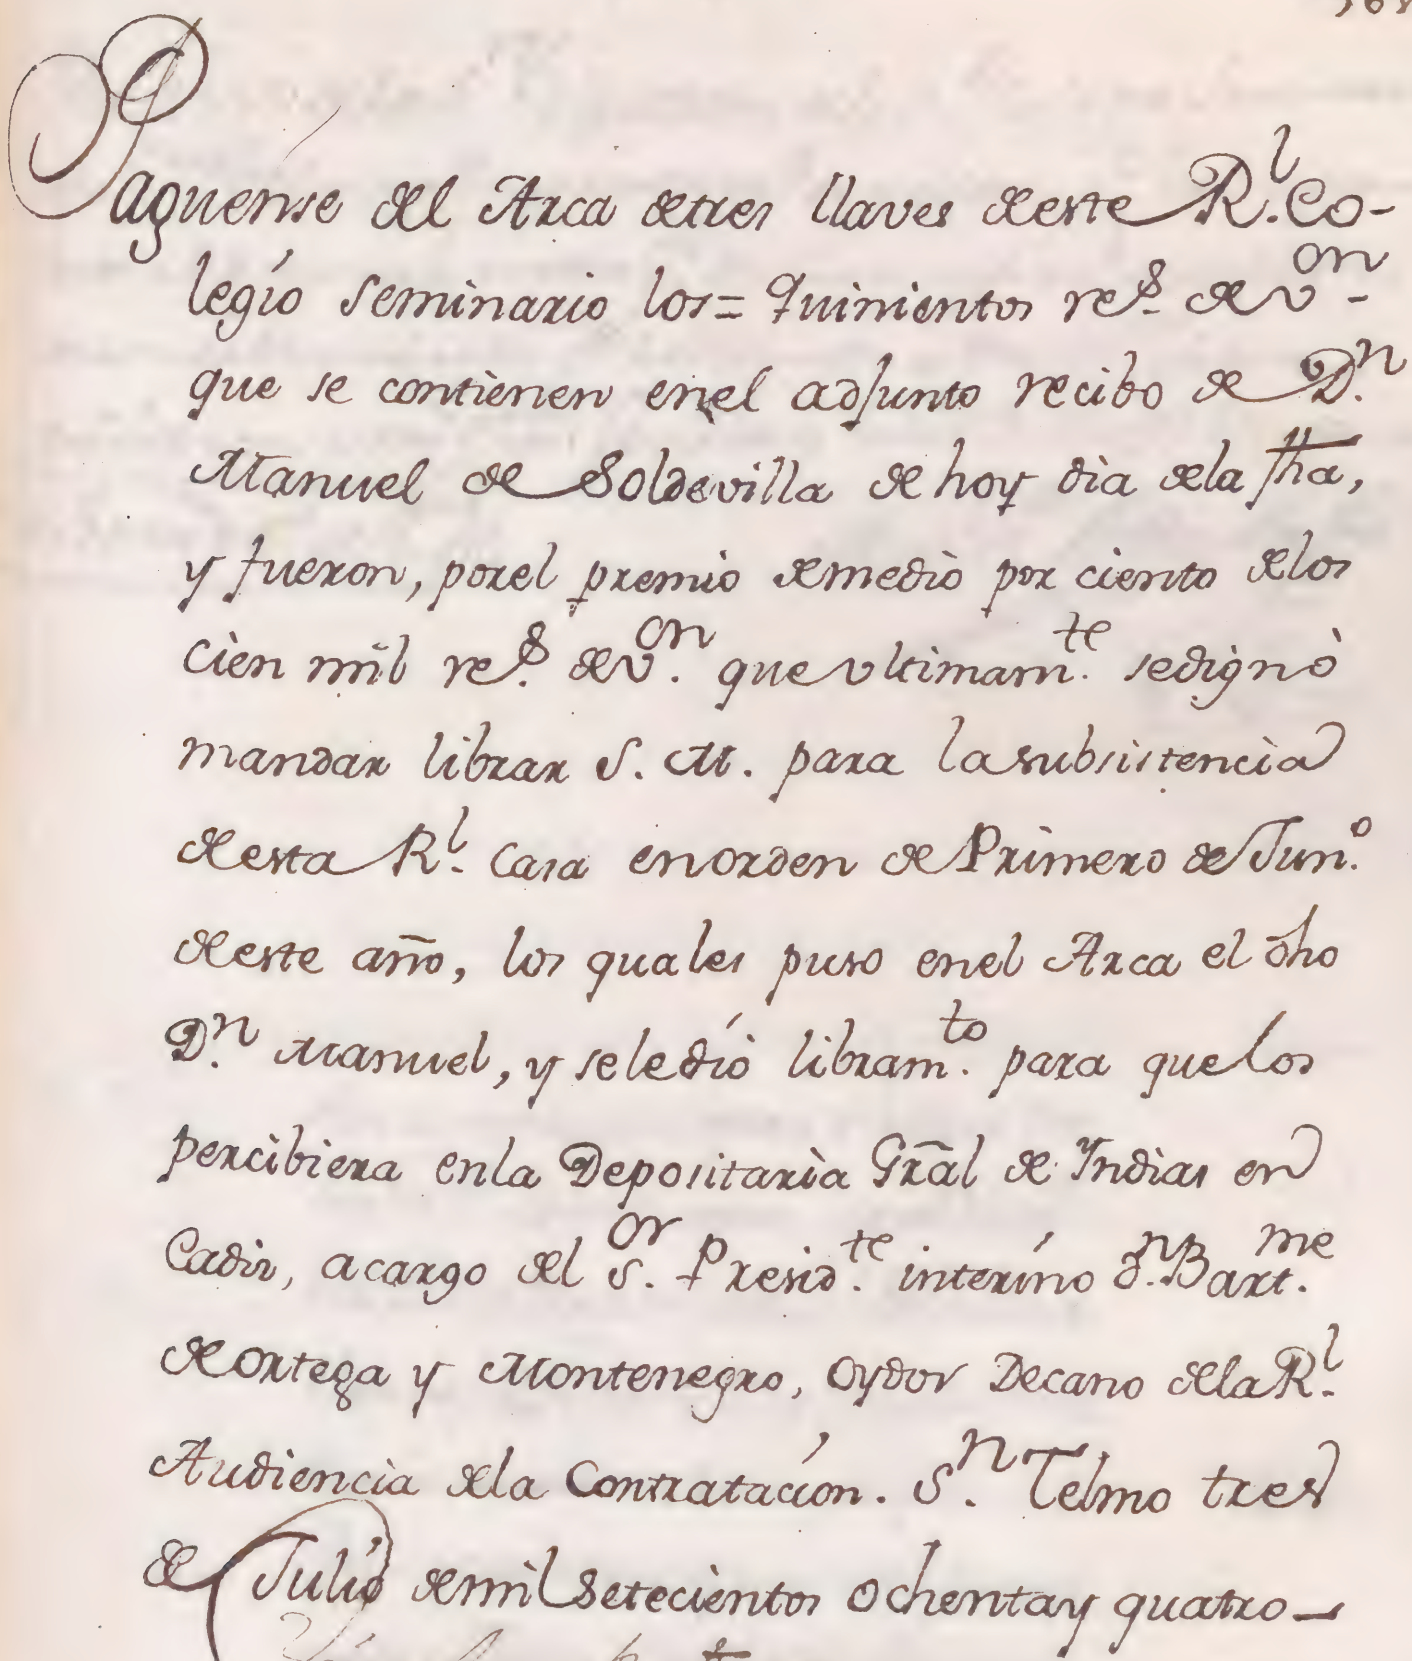 Paguense del Arca detres llaves deeste R.l Co-
legio seminario los= quinientos re.s de v.on -
que se contienen enel adjunto recibo de D.n
Manuel de Soldevilla de hoy dia dela fha,
y fueron, porel premio demedio por ciento delos
cien mil re.s dev.on que ultimam.te sedignò
mandar librar S. M. para lasubsistencia
deesta R.l Casa enorden de Primero de Jun.o
deeste año, los quales puso enel Arca el dho
D.n Manuel, y seledió libram.to para que los
percibiera enla Depositarìa Grãl de Yndias en
Cadiz, acargo del S.or Presid.te interino d.n Bart.me
deOrtega y Montenegro, Oydor Decano dela R.l
Audiencia dela Contratacion. S.n Telmo tres
de Julio demil Setecientos Ochentay quatro—